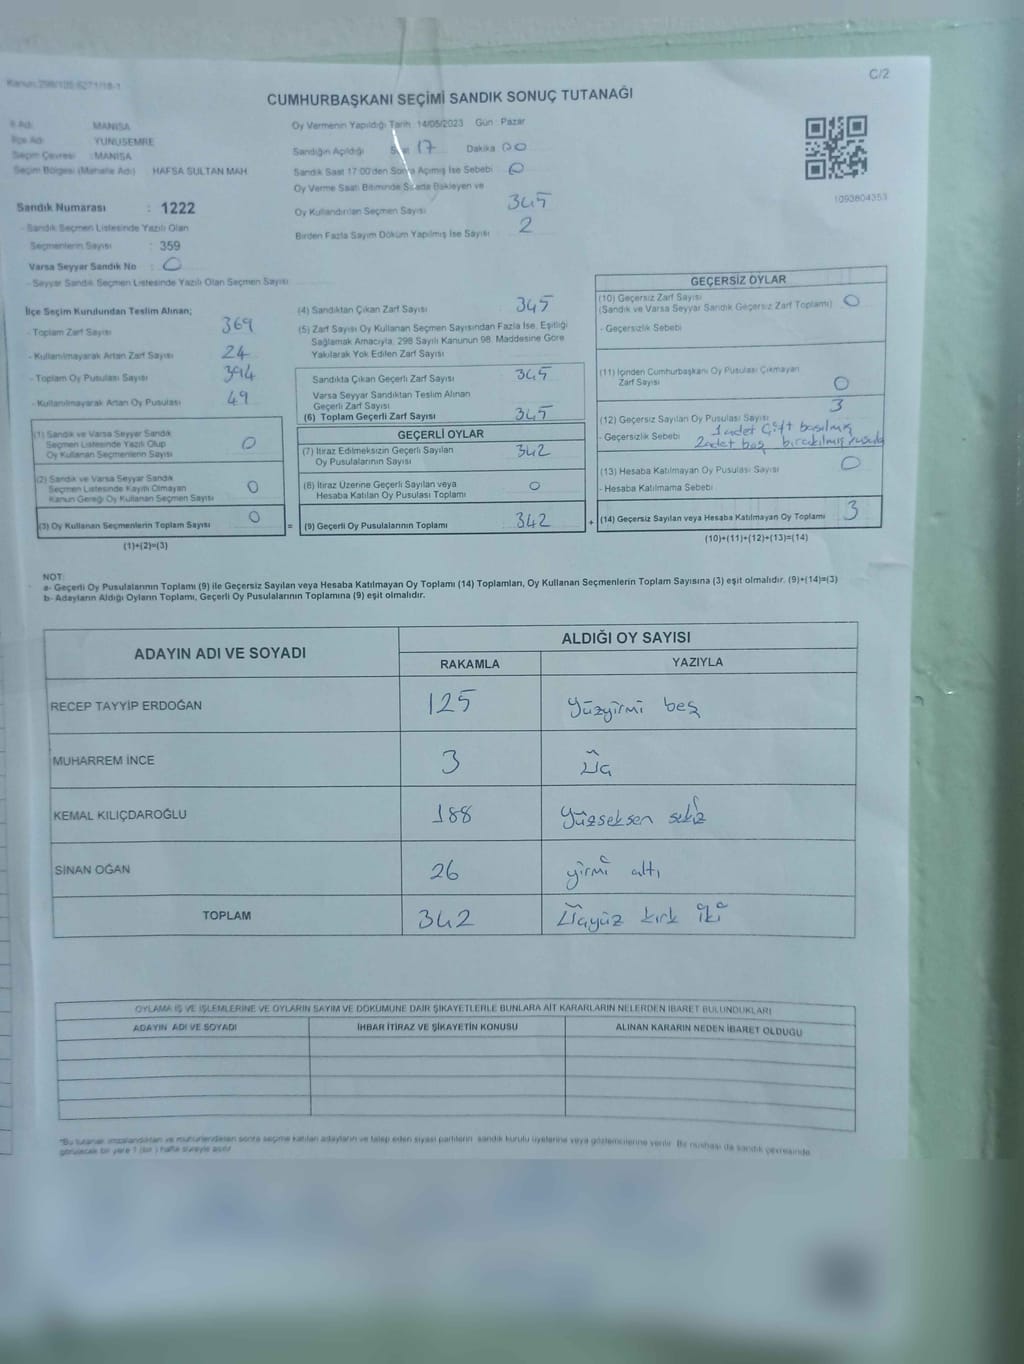 Kanun:298/105 6271/18-1
C/2
CUMHURBAŞKANI SEÇİMİ SANDIK SONUÇ TUTANAĞI
İl Adı : MANİSA
İlçe Adı : YUNUSEMRE
Seçim Çevresi : MANİSA
Seçim Bölgesi (Mahalle Adı) HAFSA SULTAN MAH.
Sandık Numarası : 1222
- Sandık Seçmen Listesinde Yazılı Olan
Seçmenlerin Sayısı : 359
Varsa Seyyar Sandık No : 0
- Seyyar Sandık Seçmen Listesinde Yazılı Olan Seçmen Sayısı
Oy Vermenin Yapıldığı Tarih :14/05/2023 Gün : Pazar
Sandığın Açıldığı Saat 17 Dakika 00
Sandık Saat 17:00'den Sonra Açılmış İse Sebebi 0
Oy Verme Saati Bitiminde Sırada Bekleyen ve
Oy Kullandırılan Seçmen Sayısı 345
Birden Fazla Sayım Döküm Yapılmış İse Sayısı 2
1093804353
İlçe Seçim Kurulundan Teslim Alınan;
- Toplam Zarf Sayısı 369
- Kullanılmayarak Artan Zarf Sayısı 24
- Toplam Oy Pusulası Sayısı 394
- Kullanılmayarak Artan Oy Pusulası 49
(1) Sandık ve Varsa Seyyar Sandık
Seçmen Listesinde Yazılı Olup
Oy Kullanan Seçmenlerin Sayısı 0
(2) Sandık ve Varsa Seyyar Sandık
Seçmen Listesinde Kayıtlı Olmayan
Kanun Gereği Oy Kullanan Seçmen Sayısı 0
(3) Oy Kullanan Seçmenlerin Toplam Sayısı 0
(1)+(2)=(3)
=
(4) Sandıktan Çıkan Zarf Sayısı 345
(5) Zarf Sayısı Oy Kullanan Seçmen Sayısından Fazla İse, Eşitliği
Sağlamak Amacıyla, 298 Sayılı Kanunun 98. Maddesine Göre
Yakılarak Yok Edilen Zarf Sayısı
Sandıkta Çıkan Geçerli Zarf Sayısı 345
Varsa Seyyar Sandıktan Teslim Alınan
Geçerli Zarf Sayısı
(6) Toplam Geçerli Zarf Sayısı 345
GEÇERLİ OYLAR
(7) İtiraz Edilmeksizin Geçerli Sayılan
Oy Pusulalarının Sayısı 342
(8) İtiraz Üzerine Geçerli Sayılan veya
Hesaba Katılan Oy Pusulası Toplamı 0
(9) Geçerli Oy Pusulalarının Toplamı 342
+
GEÇERSİZ OYLAR
(10) Geçersiz Zarf Sayısı
(Sandık ve Varsa Seyyar Sandık Geçersiz Zarf Toplamı) 0
- Geçersizlik Sebebi
(11) İçinden Cumhurbaşkanı Oy Pusulası Çıkmayan
Zarf Sayısı 0
(12) Geçersiz Sayılan Oy Pusulası Sayısı 3
- Geçersizlik Sebebi 1 adet Çift basılmış
2 adet boş bırakılmış
(13) Hesaba Katılmayan Oy Pusulası Sayısı 0
- Hesaba Katılmama Sebebi
(14) Geçersiz Sayılan veya Hesaba Katılmayan Oy Toplamı 3
(10)+(11)+(12)+(13)=(14)
NOT:
a- Geçerli Oy Pusulalarının Toplamı (9) ile Geçersiz Sayılan veya Hesaba Katılmayan Oy Toplamı (14) Toplamları, Oy Kullanan Seçmenlerin Toplam Sayısına (3) eşit olmalıdır. (9)+(14)=(3)
b- Adayların Aldığı Oyların Toplamı, Geçerli Oy Pusulalarının Toplamına (9) eşit olmalıdır.
ADAYIN ADI VE SOYADI
ALDIĞI OY SAYISI
RAKAMLA YAZIYLA
RECEP TAYYİP ERDOĞAN 125 Yüzyirmi beş
MUHARREM İNCE 3 Üç
KEMAL KILIÇDAROĞLU 188 Yüzseksen sekiz
SİNAN OĞAN 26 yirmi altı
TOPLAM 342 Üçyüz kırk iki
OYLAMA İŞ VE İŞLEMLERİNE VE OYLARIN SAYIM VE DÖKÜMÜNE DAİR ŞİKAYETLERLE BUNLARA AİT KARARLARIN NELERDEN İBARET BULUNDUKLARI
ADAYIN ADI VE SOYADI İHBAR İTİRAZ VE ŞİKAYETİN KONUSU ALINAN KARARIN NEDEN İBARET OLDUĞU
*Bu tutanak imzalandıktan ve mühürlendikten sonra seçime katılan adayların ve talep eden siyasi partilerin sandık kurulu üyelerine veya gözlemcilerine verilir. Bir nüshası da sandık çevresinde
görülecek bir yere 1 (bir) hafta süreyle asılır.